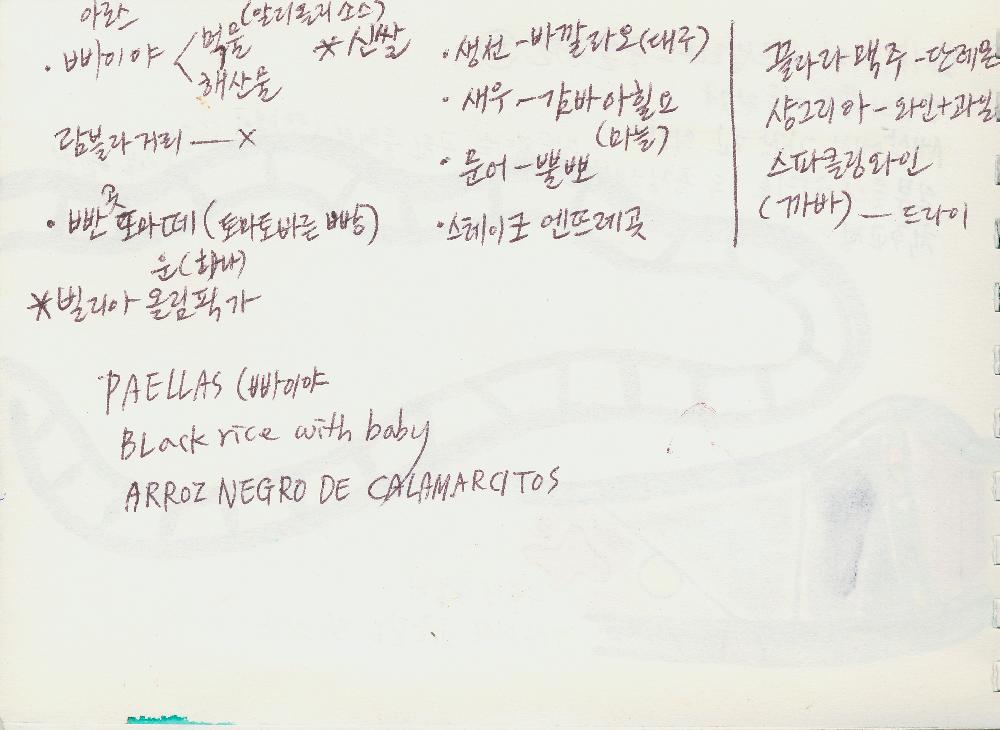 아로스 (알리올리소스)
· 빠이야 < 먹물 *신쌀
해산물
람블라거리 — X
· 빤 꼿 또마떼 (토마토바른 빵)
운(하나)
*빌리아 올림픽가
PAELLAS (빠이야
BLack rice with baby
ARROZ NEGRO DE CALAMARCITOS
· 생선 - 바깔라오 (대구)
· 새우 - 감바아힐요
(마늘)
· 문어 - 뿔뽀
· 스테이크 엔뜨레꼿
끌라라 맥주 - 단레몬
샹그리아 - 와인+과일
스파클링와인
(까바) — 드라이